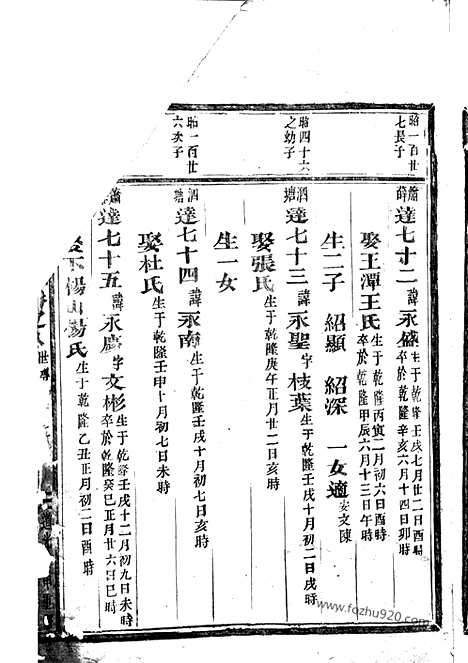 昭一百世
七長子
蕭薛達七十二諱永盛生于乾隆壬戌七月廿二日酉時卒於乾隆辛亥六月十四日卯時
娶王潭王氏生于乾隆丙寅二月初六日酉時卒於乾隆甲辰六月十三日午時
生二子 紹顯 紹深 一女適安文陳
昭四十六
之幼子
泗塘達七十三諱永聖字枝葉生于乾隆壬戌十月初二日戌時
娶張氏生于乾隆庚午正月廿二日亥時
生一女
昭一百世
六次子
泗塘達七十四諱永南生于乾隆壬戌十月初七日亥時
娶杜氏生于乾隆壬申十月初七日未時
達七十五諱永慶字文彬生于乾隆壬戌十二月初九日未時卒於乾隆癸巳正月廿六日巳時
楊氏生于乾隆乙丑正月初二日酉時
世傳
www.fozhu920.com